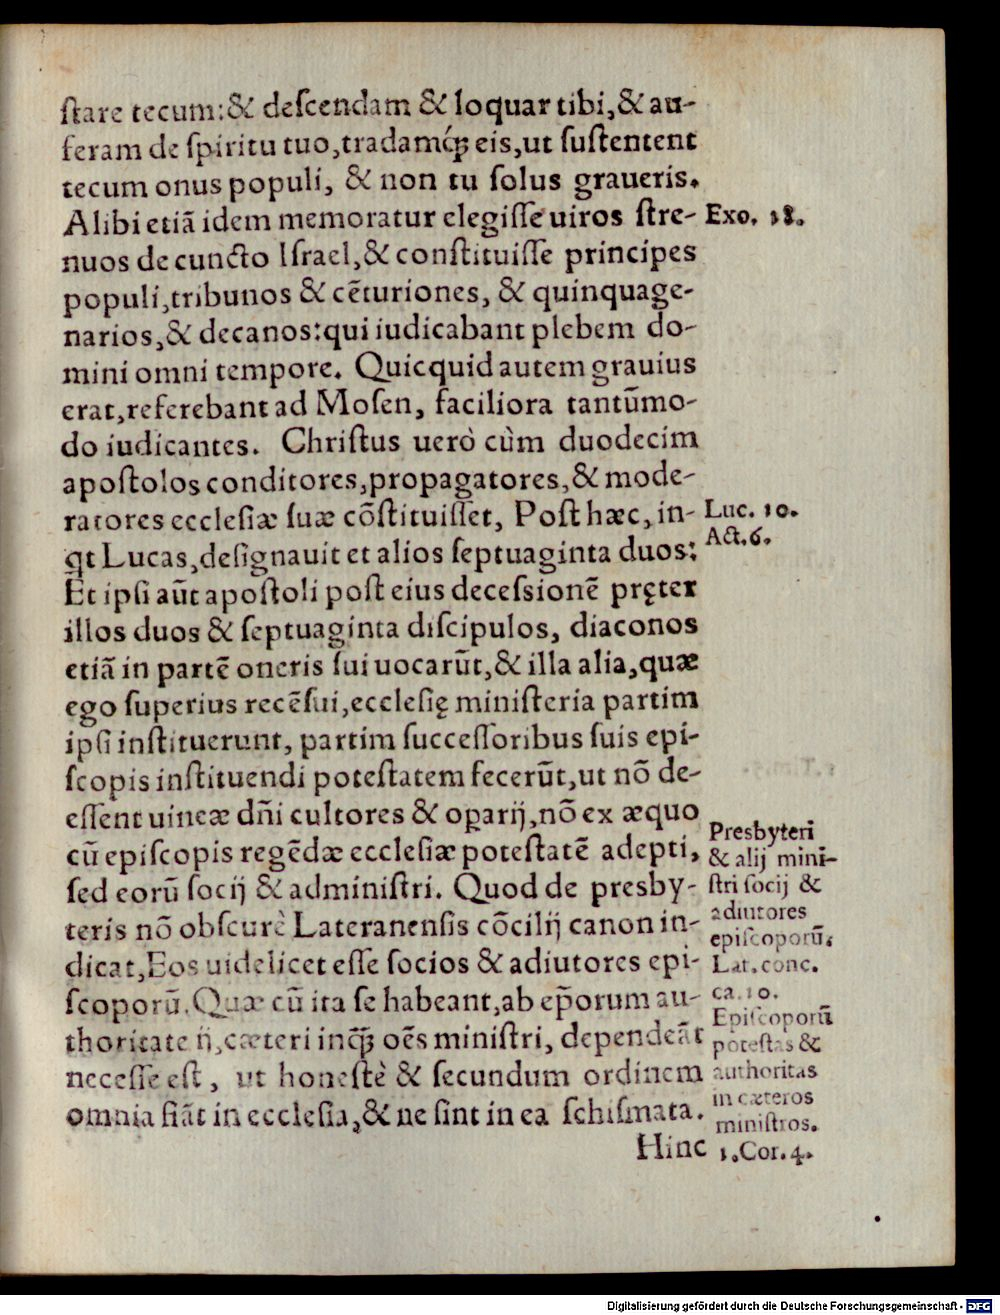 ſtare tecum:& deſcendam & loquar tibi,& au-
feram de ſpiritu tuo,tradamq́ꝫ eis,ut ſuſtentent
tecum onus populi, & non tu ſolus graueris.
Alibi etiã idem memoratur elegiſſe uiros ſtre-
Exo. 18.
nuos de cuncto Iſrael,& conſtituiſſe principes
populi,tribunos & cẽturiones, & quinquage-
narios,& decanos:qui iudicabant plebem do-
mini omni tempore. Quicquid autem grauius
erat,referebant ad Moſen, faciliora tantũmo-
do iudicantes. Chriſtus uerò cùm duodecim
apoſtolos conditores,propagatores,& mode-
ratores eccleſiæ ſuæ cõſtituiſſet, Poſt hæc, in-
Luc. 10.
Act.6.
q̃t Lucas,deſignauit et alios ſeptuaginta duos:
Et ipſi aũt apoſtoli poſt eius deceſsionẽ pręter
illos duos & ſeptuaginta diſcipulos, diaconos
etiã in partẽ oneris ſui uocarũt,& illa alia,quæ
ego ſuperius recẽſui,eccleſię miniſteria partim
ipſi inſtituerunt, partim ſucceſſoribus ſuis epi-
ſcopis inſtituendi poteſtatem fecerũt,ut nõ de-
eſſent uineæ dñi cultores & oꝑarij,nõ ex æquo
cũ epiſcopis regẽdæ eccleſiæ poteſtatẽ adepti,
ſed eorũ ſocij & adminiſtri. Quod de presby-
teris nõ obſcurè Lateranenſis cõcilij canon in-
dicat,Eos uidelicet eſſe ſocios & adiutores epi-
ſcoporũ. Quæ cũ ita ſe habeant,ab ep̃orum au-
thoritate ij,cæteri inq́ꝫ oẽs miniſtri, dependeãt
neceſſe eſt, ut honeſtè & ſecundum ordinem
omnia fiãt in eccleſia,& ne ſint in ea ſchiſmata.
Presbyteri
& alij mini-
ſtri ſocij &
adiutores
epiſcoporũ.
Lat.conc.
ca.10.
Epiſcoporũ
poteſtas &
authoritas
in cæteros
miniſtros.
1.Cor.4.
Hinc
Digitalisierung gefördert durch die Deutsche Forschungsgemeinschaft - DFG